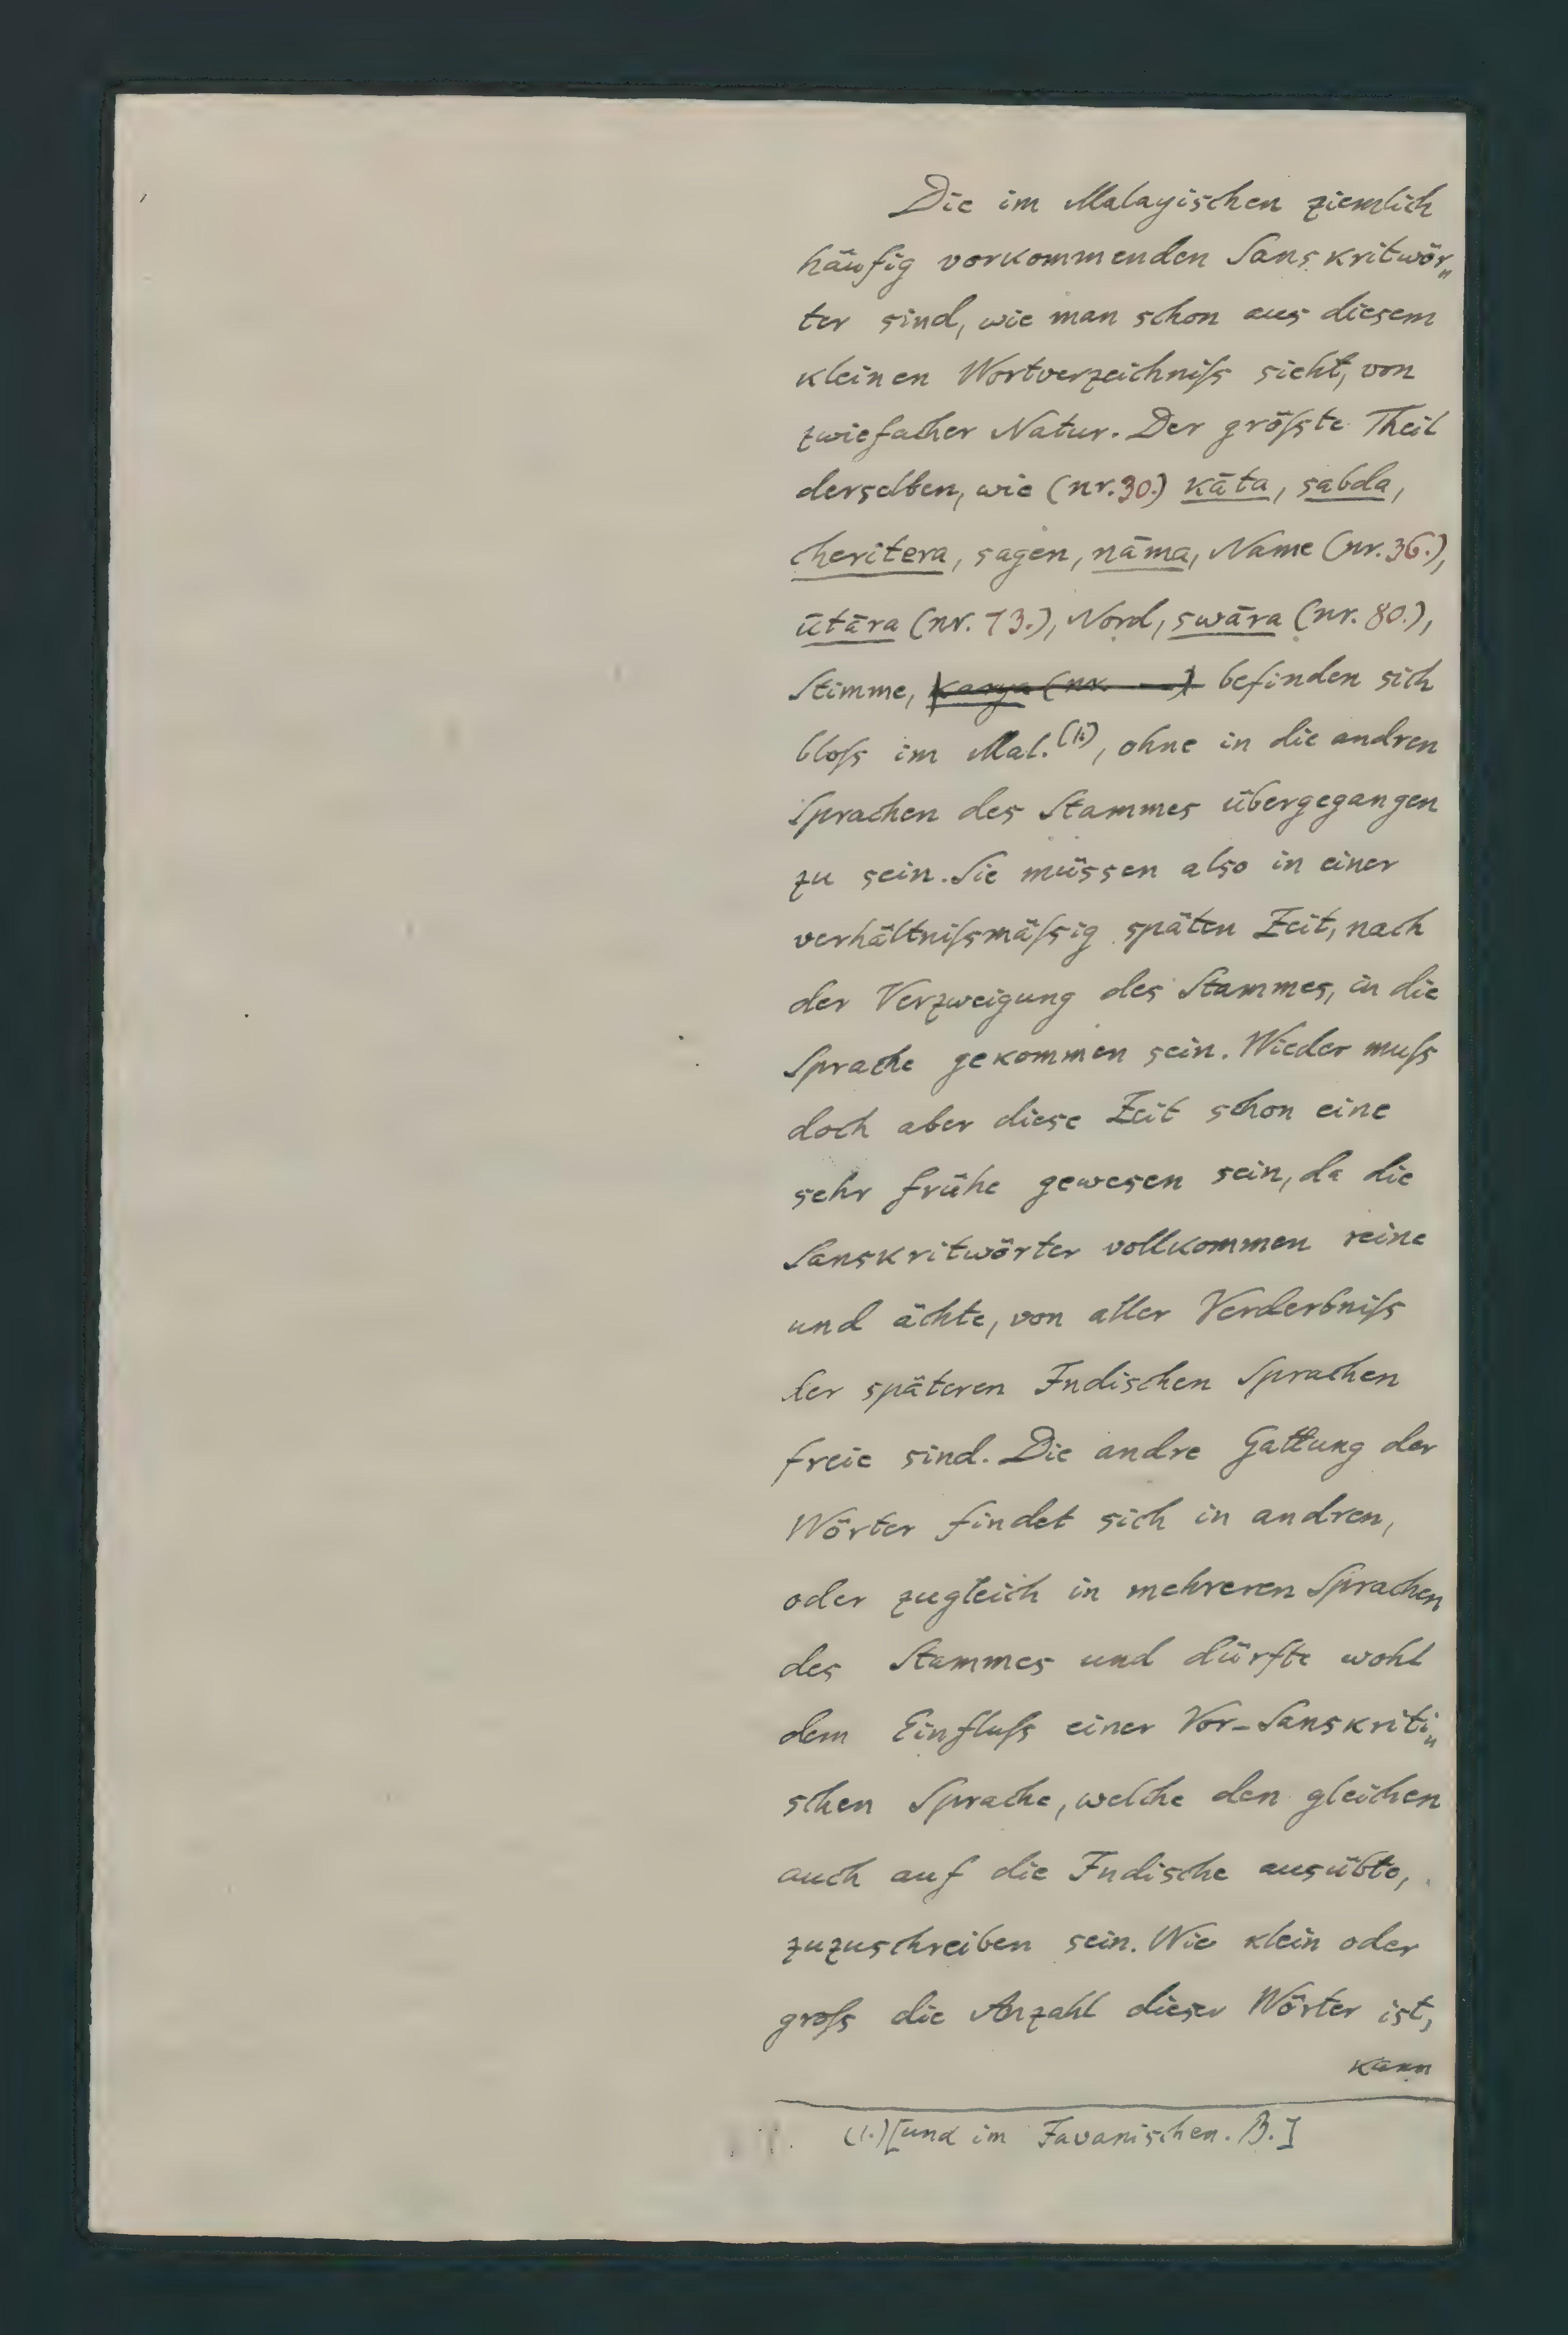 Die im Malayischen ziemlich
häufig vorkommenden Sanskritwör„
ter sind, wie man schon aus diesem
kleinen Wortverzeichniſs sieht, von
zwiefacher Natur. Der gröſste Theil
derselben, wie (nr. 30.) kāta, sabda,
cheritera, sagen, nāma, Name (nr. 36.),
ūtāra (nr. 73.), Nord, swāra (nr. 80.),
Stimme, karya (nr. —) befinden sich
bloſs im Mal. (1.), ohne in die andren
Sprachen des Stammes übergegangen
zu sein. Sie müssen also in einer
verhältniſsmäſsig späten Zeit, nach
der Verzweigung des Stammes, in die
Sprache gekommen sein. Wieder muſs
doch aber diese Zeit schon eine
sehr frühe gewesen sein, da die
Sanskritwörter vollkommen reine
und ächte, von aller Verderbniſs
der späteren Indischen Sprachen
freie sind. Die andre Gattung der
Wörter findet sich in andren,
oder zugleich in mehreren Sprachen
des Stammes und dürfte wohl
dem Einfluſs einer Vor-Sanskriti„
schen Sprache, welche den gleichen
auch auf die Indische ausübte,
zuzuschreiben sein. Wie klein oder
groſs die Anzahl dieser Wörter ist,
kann
(1.) [und im Javanischen. B.]